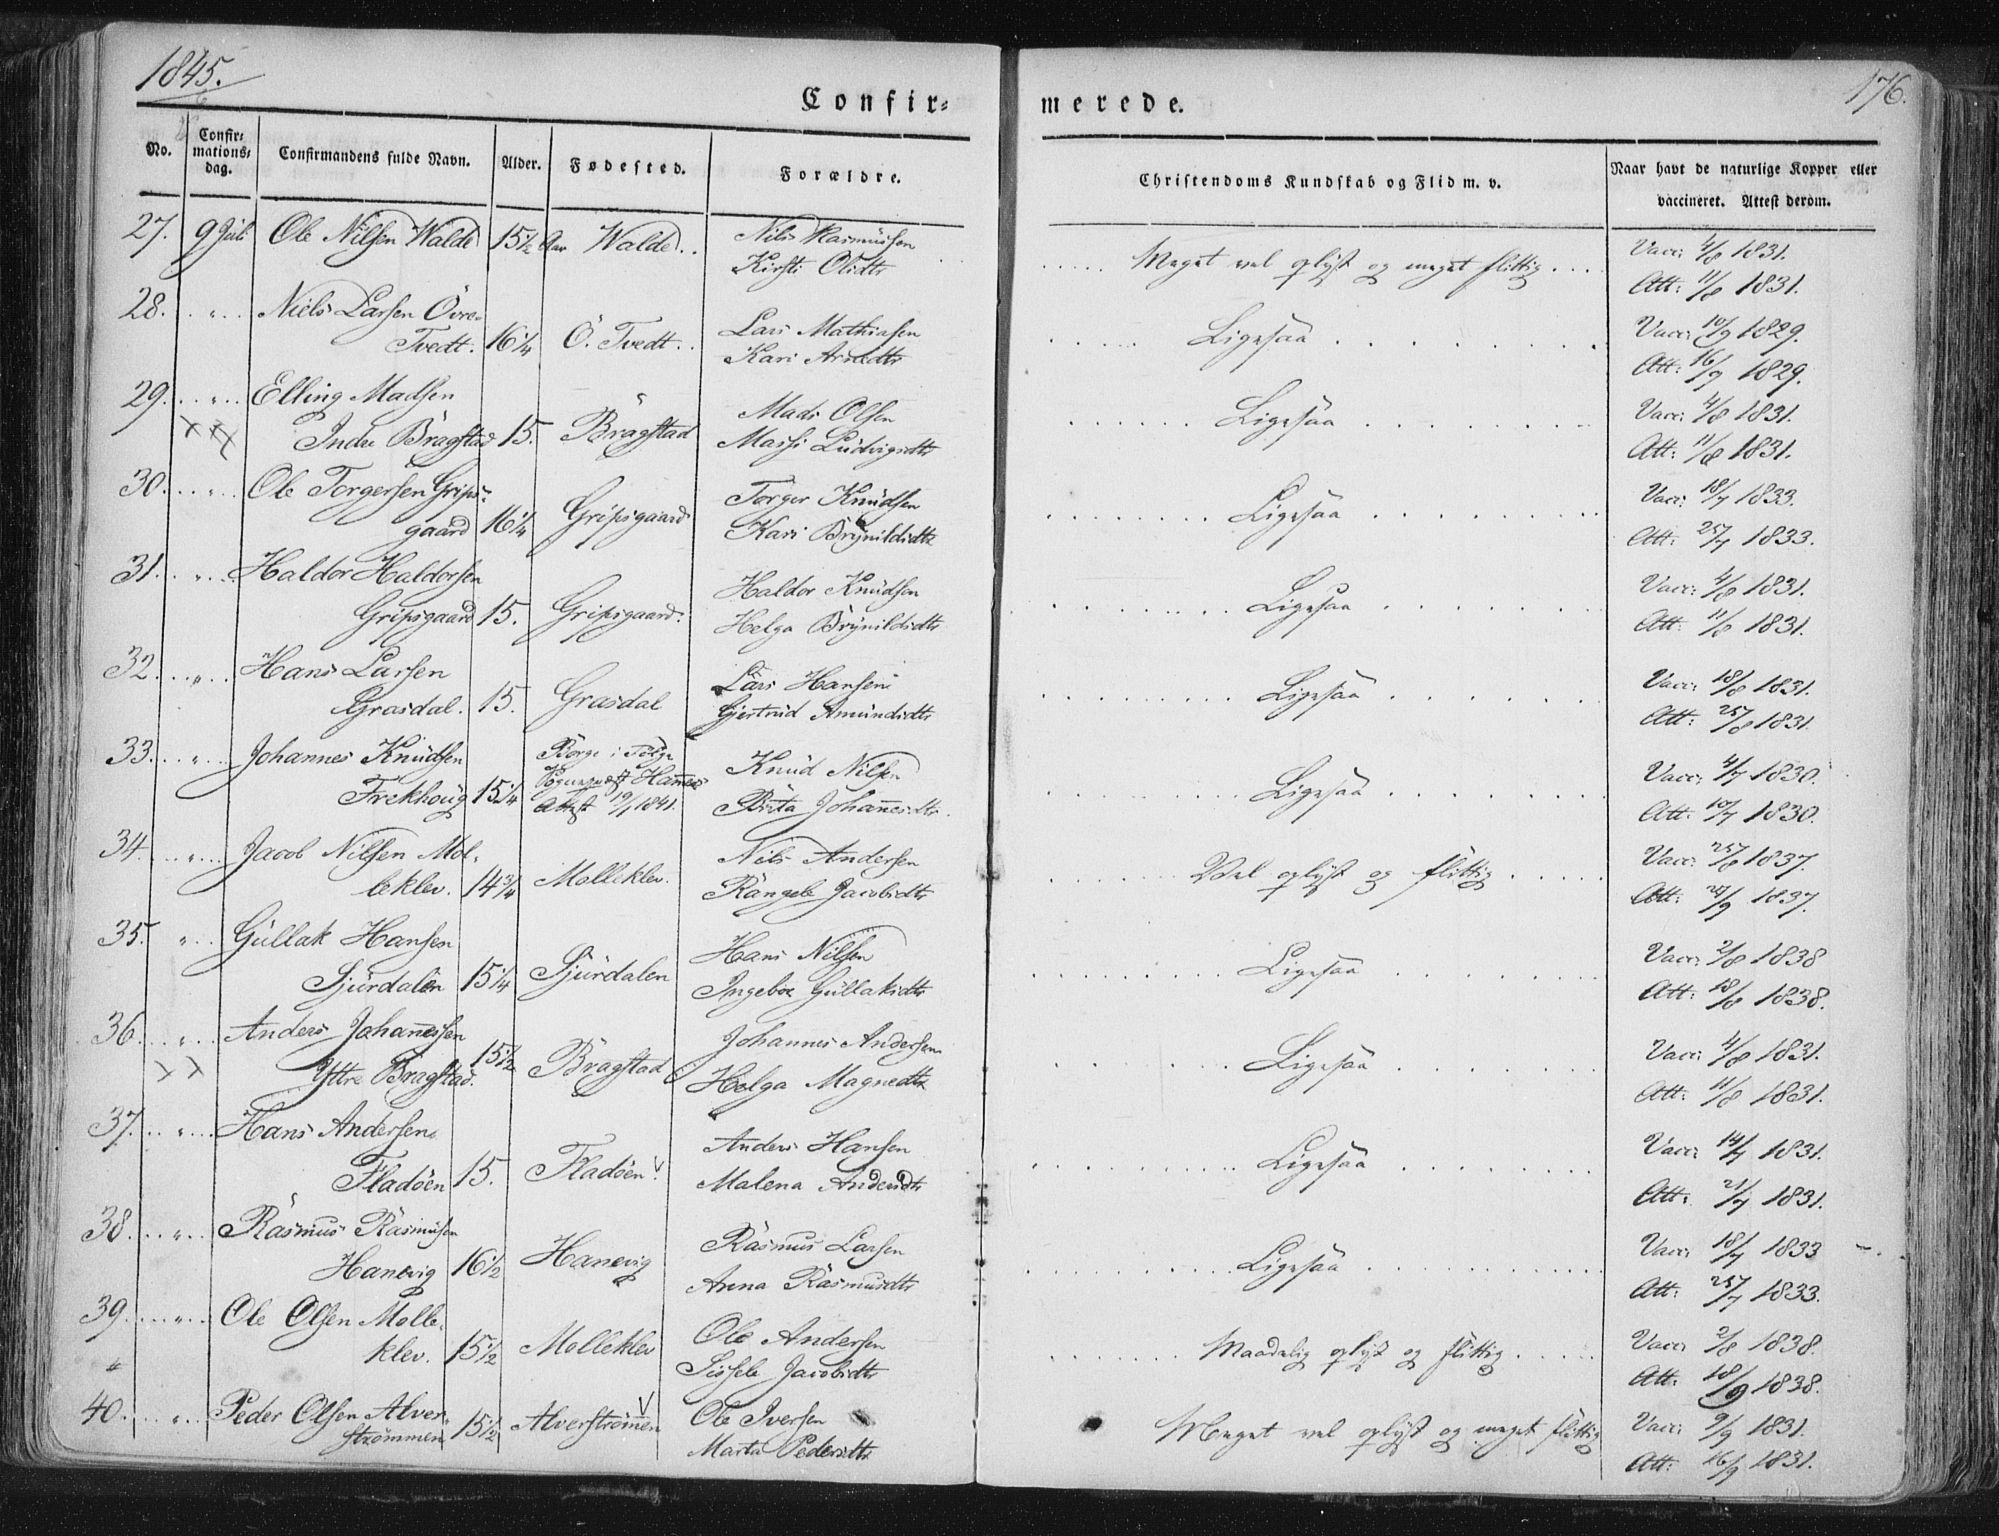 1845.
176.
Confir=
merede.
No.
Confir= mations= dag.
Confirmandens fulde Navn.
Alder.
Fødested.
Forældre.
Christendoms Kundskab og Flid m. v.
Naar havt de naturlige Kopper eller
vaccineret. Attest derom.
27. 9 Juli Ole Nilsen Walde 15½ Aar Walde. Nils Rasmussen
Kirsti Olsdtr
Meget vel oplyst og meget flittig
Vacc: 4/8 1831.
Att: 11/8 1831.
28. " Niels Larsen Övre=
Tvedt. 16¼ Ö. Tvedt. Lars Mathiasen
Kari Arnedtr
Ligesaa
Vacc: 10/9 1829.
Att: 16/9 1829.
29. " Elling Madsen
Indre Bragstad 15. Bragstad Mads Olsen
Massi Ludvigsdtr
Ligesaa
Vacc: 4/8 1831.
Att: 11/8 1831.
30. " Ole Torgersen Grips=
gaard 16¼ Gripsgaard Torger Knudsen
Kari Brynildsdtr
Ligesaa
Vacc: 18/7 1833.
Att: 25/7 1833.
31. " Haldor Haldorsen
Gripsgaard 15. Gripsgaard. Haldor Knudsen
Helga Brynildsdtr
Ligesaa
Vacc: 4/8 1831.
Att: 11/8 1831.
32. " Hans Larsen
Grasdal. 15. Grasdal Lars Hansen
Gjertrud Amundsdtr
Ligesaa
Vacc: 18/8 1831.
Att: 25/8 1831.
33. " Johannes Knudsen
Frekhoug 15¼ Börge i Følge
Hammers
Attest 19/1 1841.
Knud Nilsen
Brita Johannesdtr.
Ligesaa
Vacc: 4/7 1830.
Att: 10/7 1830.
34. " Jacob Nilsen Mol=
leklev. 14¾ Molleklev. Nils Andersen
Rangele Jacobsdtr
Vel oplyst og flittig
Vacc: 25/8 1837.
Att: 1837.
35. " Gullak Hansen
Sjurdalen 15¼ Sjurdalen Hans Nilsen
Ingebor Gullaksdtr
Ligesaa
Vacc: 2/8 1838
Att: 18/8 1838.
36. " Anders Johannessen
Yttre Bragstad. 15½ Bragstad Johannes Andersen
Helga Magnedtr
Ligesaa
Vacc: 4/8 1831.
Att: 11/8 1831.
37. " Hans Andersen
Fladöen 15. Fladöen. Anders Hansen
Malena Andersdtr
Ligesaa
Vacc: 14/7 1831.
Att: 21/7 1831.
38. " Rasmus Rasmussen
Hanevig 16½ Hanevig Rasmus Larsen
Anna Rasmusdtr
Ligesaa
Vacc: 18/7 1833
Att: 25/7 1833.
39. " Ole Olsen Molle=
klev. 15½ Molleklev Ole Andersen
Sissele Jacobsdtr
Maadelig oplyst og flittig
Vacc: 2/8 1838.
Att: 18/9 1838.
40. " Peder Olsen Alver=
strømmen 15½ Alverstrømmen Ole Iversen
Marta Pedersdtr
Meget vel oplyst og meget flittig
Vacc: 9/9 1831.
Att: 16/9 1831.